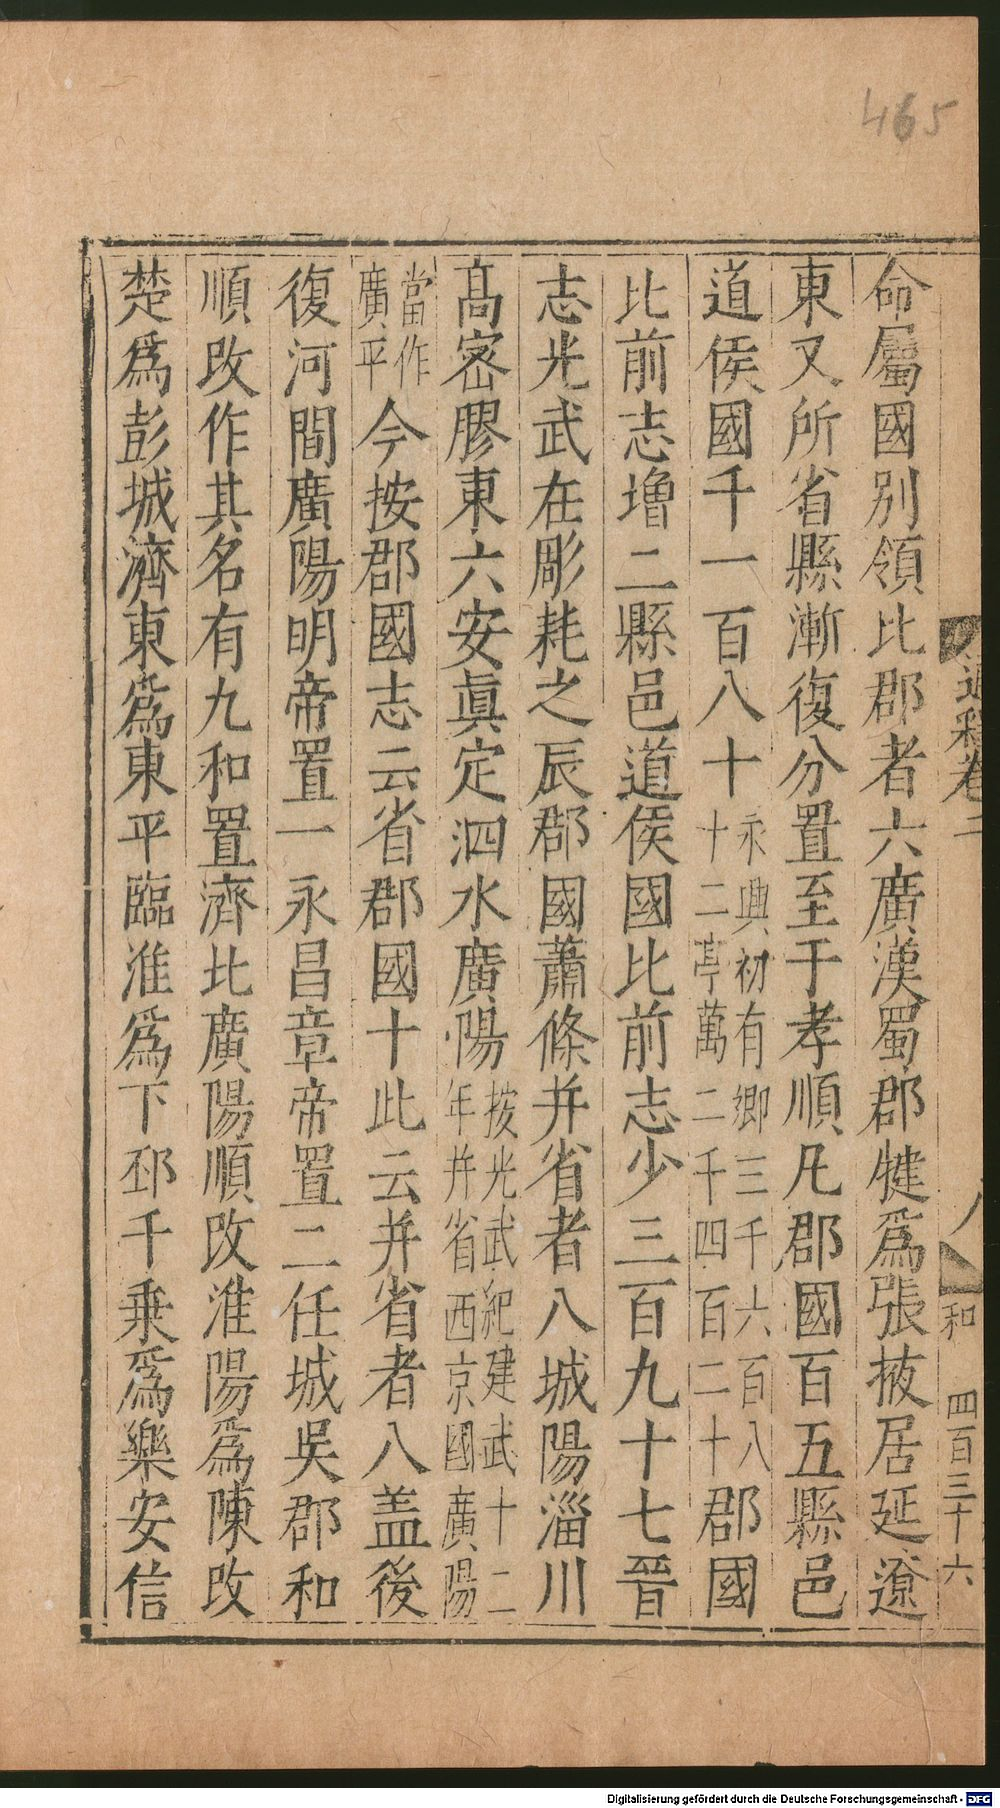 465
通釋卷二
八
和
四百三十六
命屬國別領比郡者六廣漢蜀郡犍爲張掖居延遼
東又所省縣漸復分置至于孝順凡郡國百五縣邑
道侯國千一百八十永興初有鄉三千六百八十二亭萬二千四百二十郡國
比前志增二縣邑道侯國比前志少三百九十七晉
志光武在彫耗之辰郡國蕭條幷省者八城陽淄川
高密膠東六安眞定泗水廣陽按光武紀建武十二年幷省西京國廣陽
當作廣平今按郡國志云省郡國十此云幷省者八盖後
復河間廣陽明帝置一永昌章帝置二任城吳郡和
順改作其名有九和置濟北廣陽順改淮陽爲陳改
楚爲彭城濟東爲東平臨淮爲下邳千乗爲樂安信
Digitalisierung gefördert durch die Deutsche Forschungsgemeinschaft - DFG